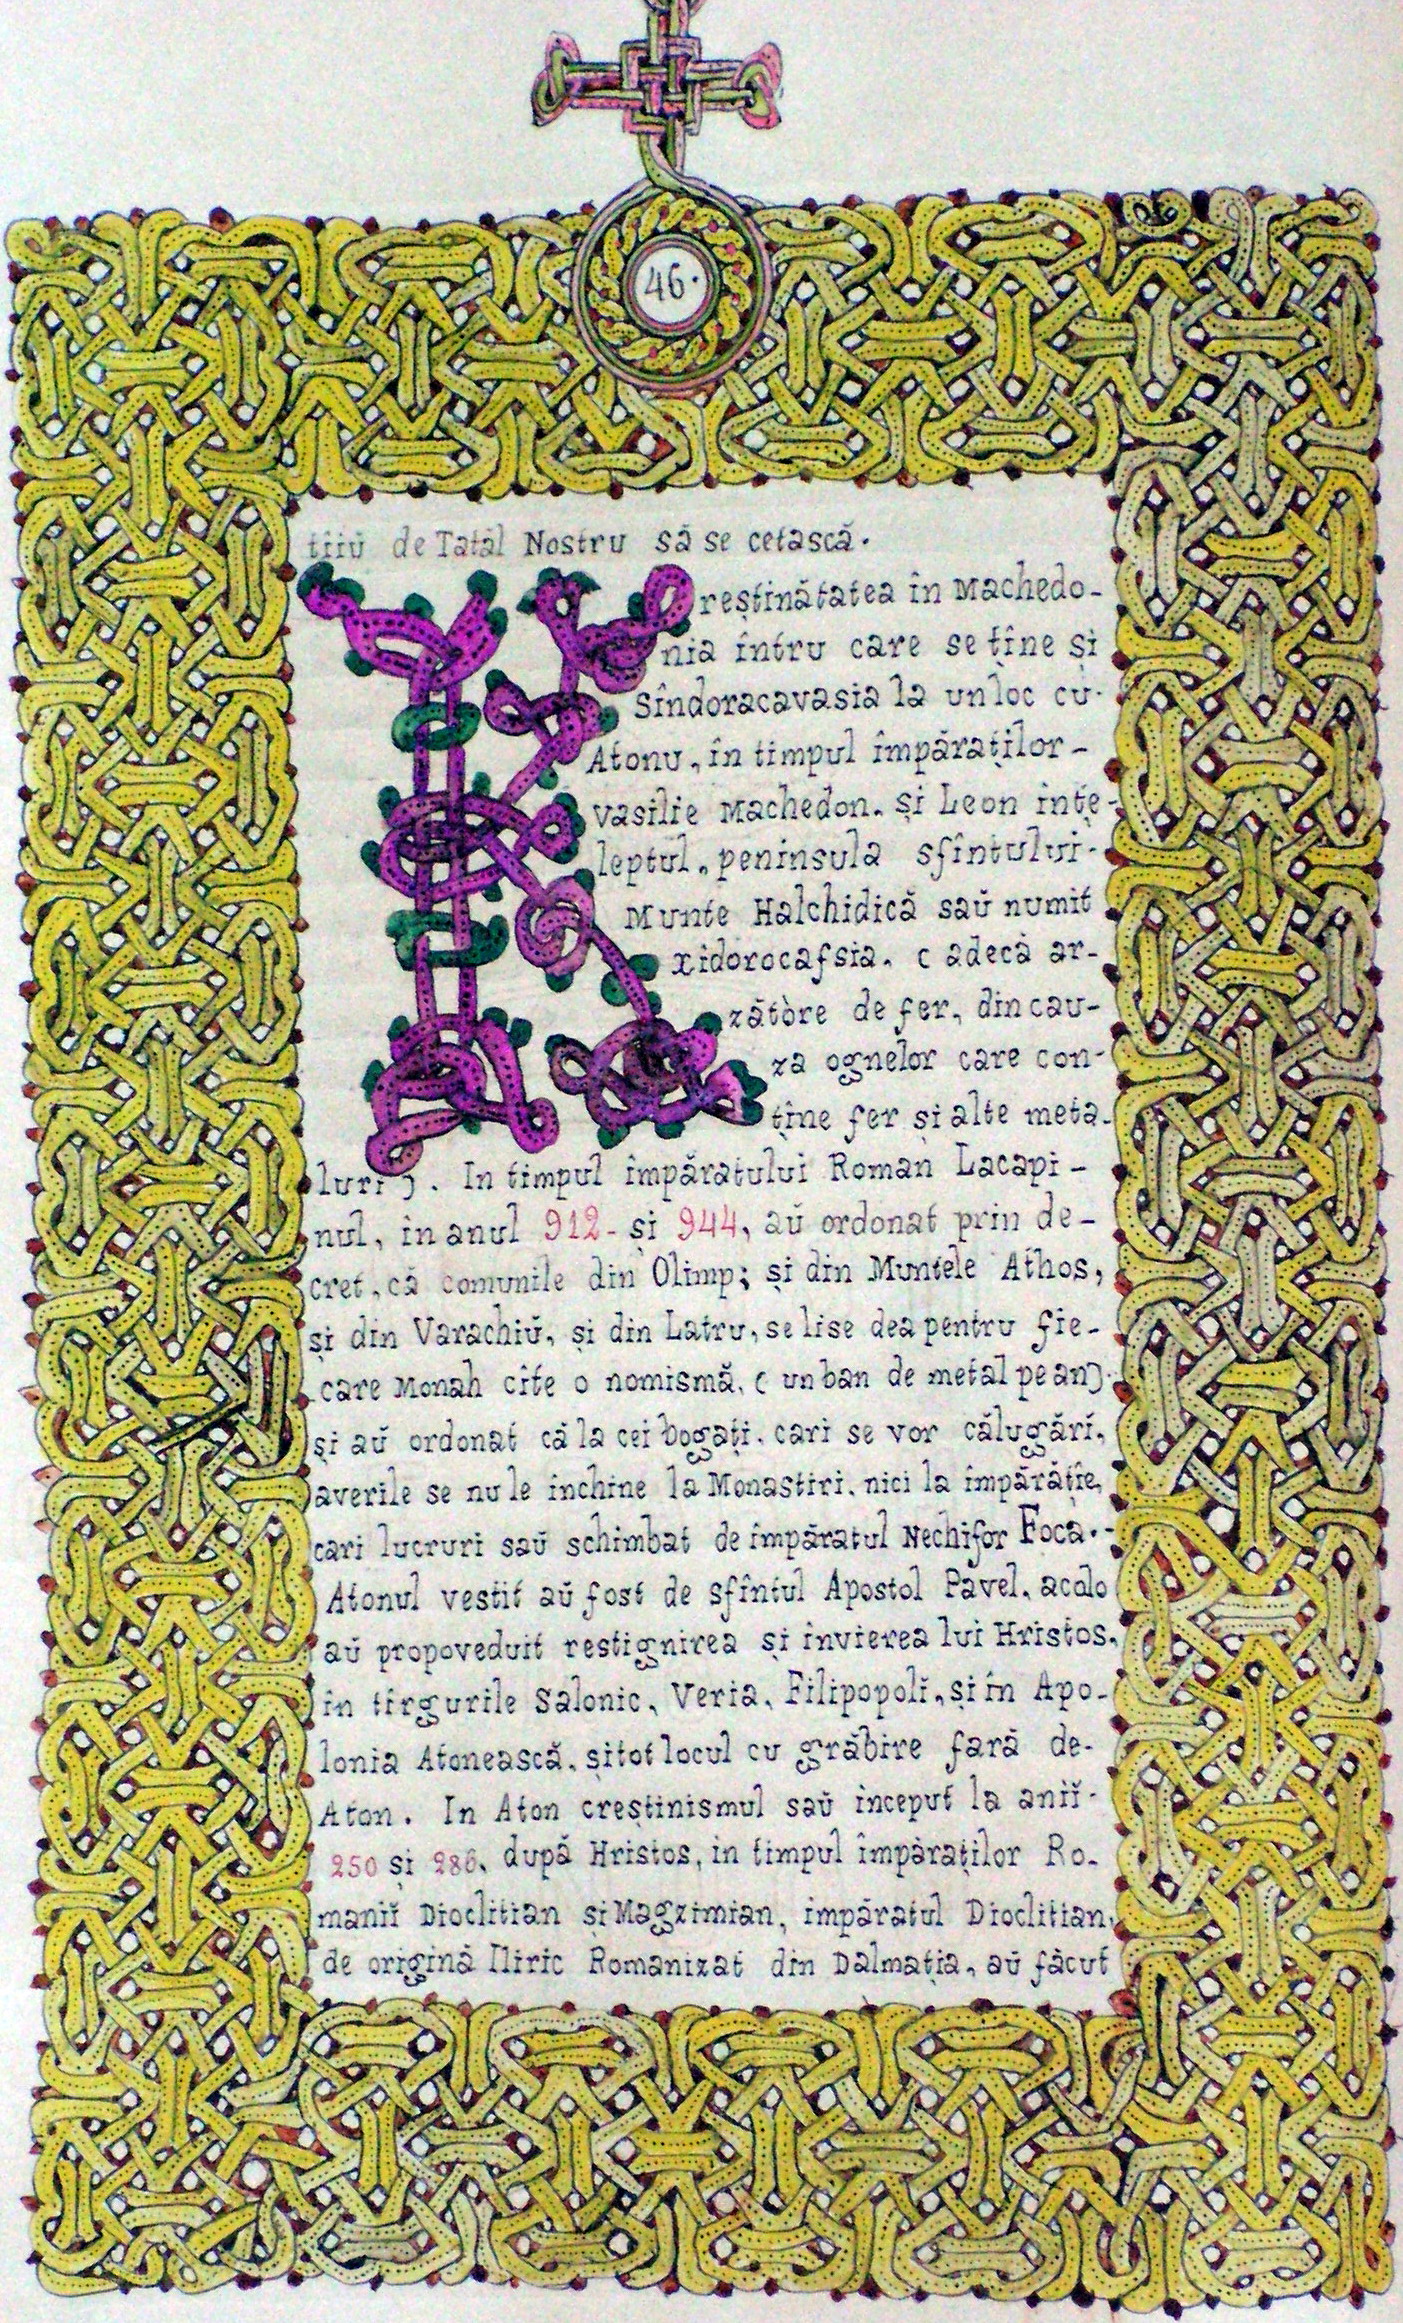 46.
tiiŭ de Tatăl Nostru să se cetască.
Kreștinătatea în Machedo-
nia întru care se ține și
Sîndoracavasia la un loc cu-
Atonu, în timpul împăraților-
vasilie Machedon. și Leon înțe-
leptul, peninsula sfîntului-
Munte Halchidică saŭ numit
xidorocafsia. ( adecă ar-
zătòre de fer, din cau-
za ognelor care con-
ține fer și alte meta-
luri ). In timpul împăratului Roman Lacapi-
nul, în anul 912- și 944, aŭ ordonat prin de-
cret, că comunile din Olimp; și din Muntele Athos,
și din Varachiŭ, și din Latru, se lise dea pentru fie-
care Monah cîte o nomismă. ( un ban de metal pe an)
și aŭ ordonat că la cei bogați. cari se vor călugări,
averile se nu le inchine la Monastiri. nici la împărăție,
cari lucruri saŭ schimbat de împăratul Nechifor Foca.-
Atonul vestit aŭ fost de sfîntul Apostol Pavel. acolo
aŭ propoveduit restignirea și învierea lui Hristos,
în tîrgurile Salonic, Veria, Filipopoli, și în Apo-
lonia Atonească. și tot locul cu grăbire fară de-
Aton. In Aton creștinismul saŭ inceput la aniĭ-
250 și 286, după Hristos, in timpul împăraților Ro-
maniĭ Dioclitian și Magzimian, impăratul Dioclitian,
de origină Iliric Romanizat din Dalmația, aŭ făcut